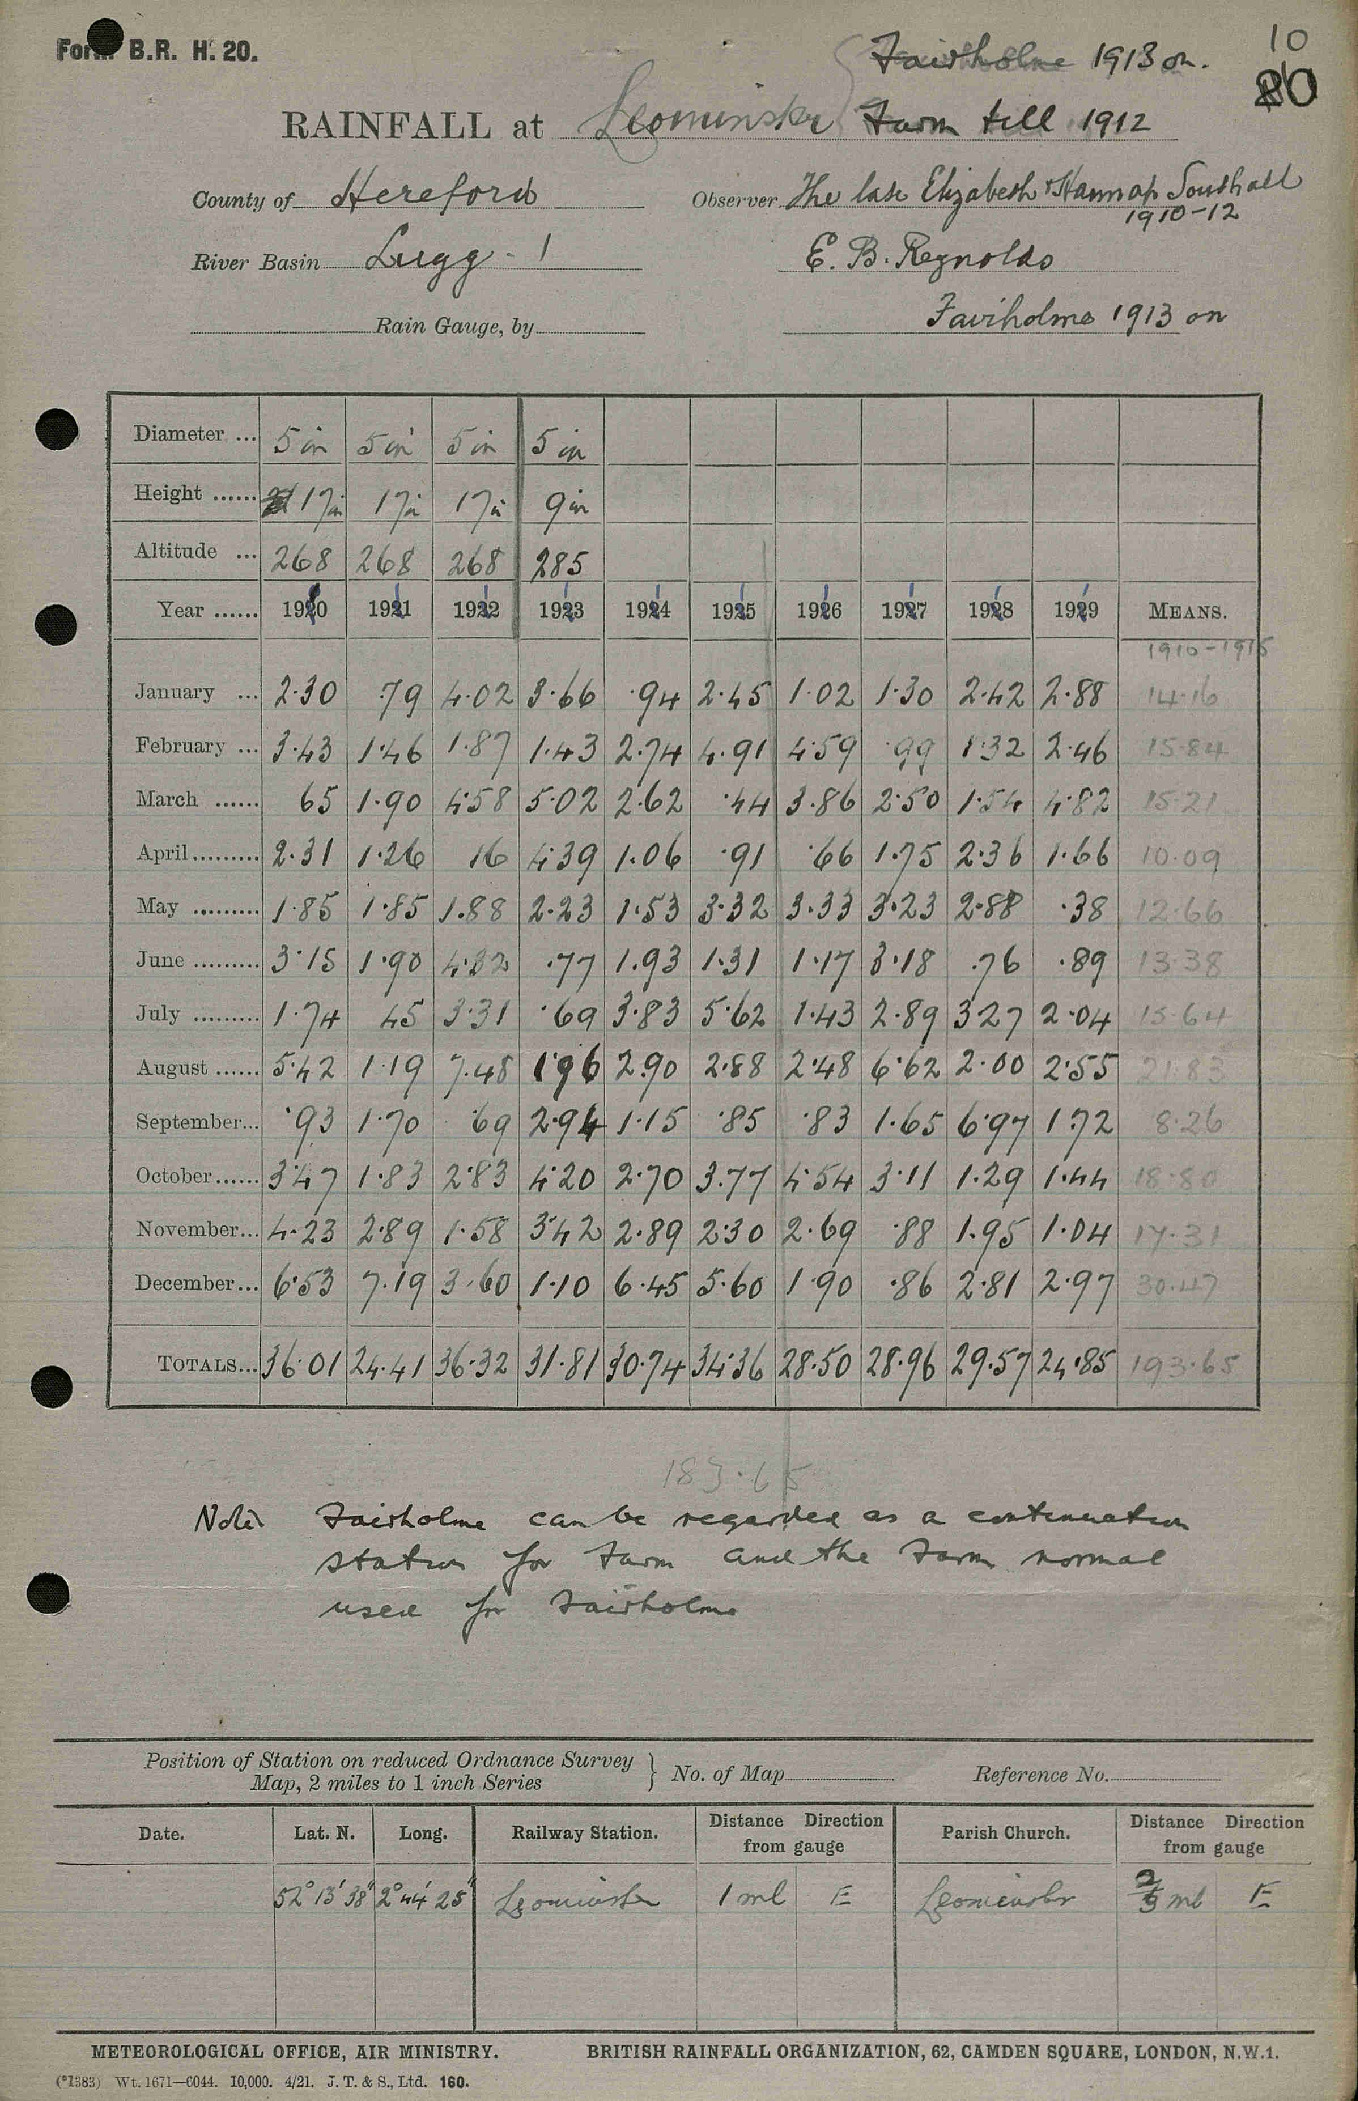 Form B.R. H. 20.
10
20
Fairholme 1913 on.
RAINFALL at Leominster Farm till 1912
County of Hereford
Observer The late Elizabeth & Hannah Southall
1910-12
River Basin Lugg - 1
E. B. Reynolds
Rain Gauge, by
Fairholme 1913 on
Diameter ... 5 in 5 in 5 in 5 in
Height ...... 17 in 17 in 17 in 9 in
Altitude ... 268 268 268 285
Year ...... 1910 1911 1912 1913 1914 1915 1916 1917 1918 1919 MEANS.
1910-1915
January ... 2·30 ·79 4·02 3·66 ·94 2·45 1·02 1·30 2·42 2·88 14·16
February ... 3·43 1·46 1·87 1·43 2·74 4·91 4·59 ·99 1·32 2·46 15·84
March ...... 65 1·90 4·58 5·02 2·62 ·44 3·86 2·50 1·54 4·82 15·21
April ......... 2·31 1·26 16 4·39 1·06 ·91 ·66 1·75 2·36 1·66 10·09
May ......... 1·85 1·85 1·88 2·23 1·53 3·32 3·33 3·23 2·88 ·38 12·66
June ......... 3·15 1·90 4·32 ·77 1·93 1·31 1·17 3·18 ·76 ·89 13·38
July ......... 1·74 45 3·31 ·69 3·83 5·62 1·43 2·89 3·27 2·04 15·64
August ...... 5·42 1·19 7·48 1·96 2·90 2·88 2·48 6·62 2·00 2·55 21·83
September... ·93 1·70 69 2·94 1·15 ·85 ·83 1·65 6·97 1·72 8·26
October...... 3·47 1·83 2·83 4·20 2·70 3·77 4·54 3·11 1·29 1·44 18·80
November... 4·23 2·89 1·58 3·42 2·89 2·30 2·69 ·88 1·95 1·04 17·31
December... 6·53 7·19 3·60 1·10 6·45 5·60 1·90 ·86 2·81 2·97 30·47
TOTALS... 36·01 24·41 36·32 31·81 30·74 34·36 28·50 28·96 29·57 24·85 193·65
183·65
Note Fairholme can be regarded as a continuation
station for Farm and the Farm normal
used for Fairholme
Position of Station on reduced Ordnance Survey
Map, 2 miles to 1 inch Series } No. of Map Reference No.
Date. Lat. N. Long. Railway Station. Distance Direction from gauge Parish Church. Distance Direction from gauge
52° 13' 38" 2° 44' 25" Leominster 1 ml E Leominster ml E
METEOROLOGICAL OFFICE, AIR MINISTRY. BRITISH RAINFALL ORGANIZATION, 62, CAMDEN SQUARE, LONDON, N.W.1.
(*1383) Wt. 1671—6044. 10,000. 4/21. J. T. & S., Ltd. 160.